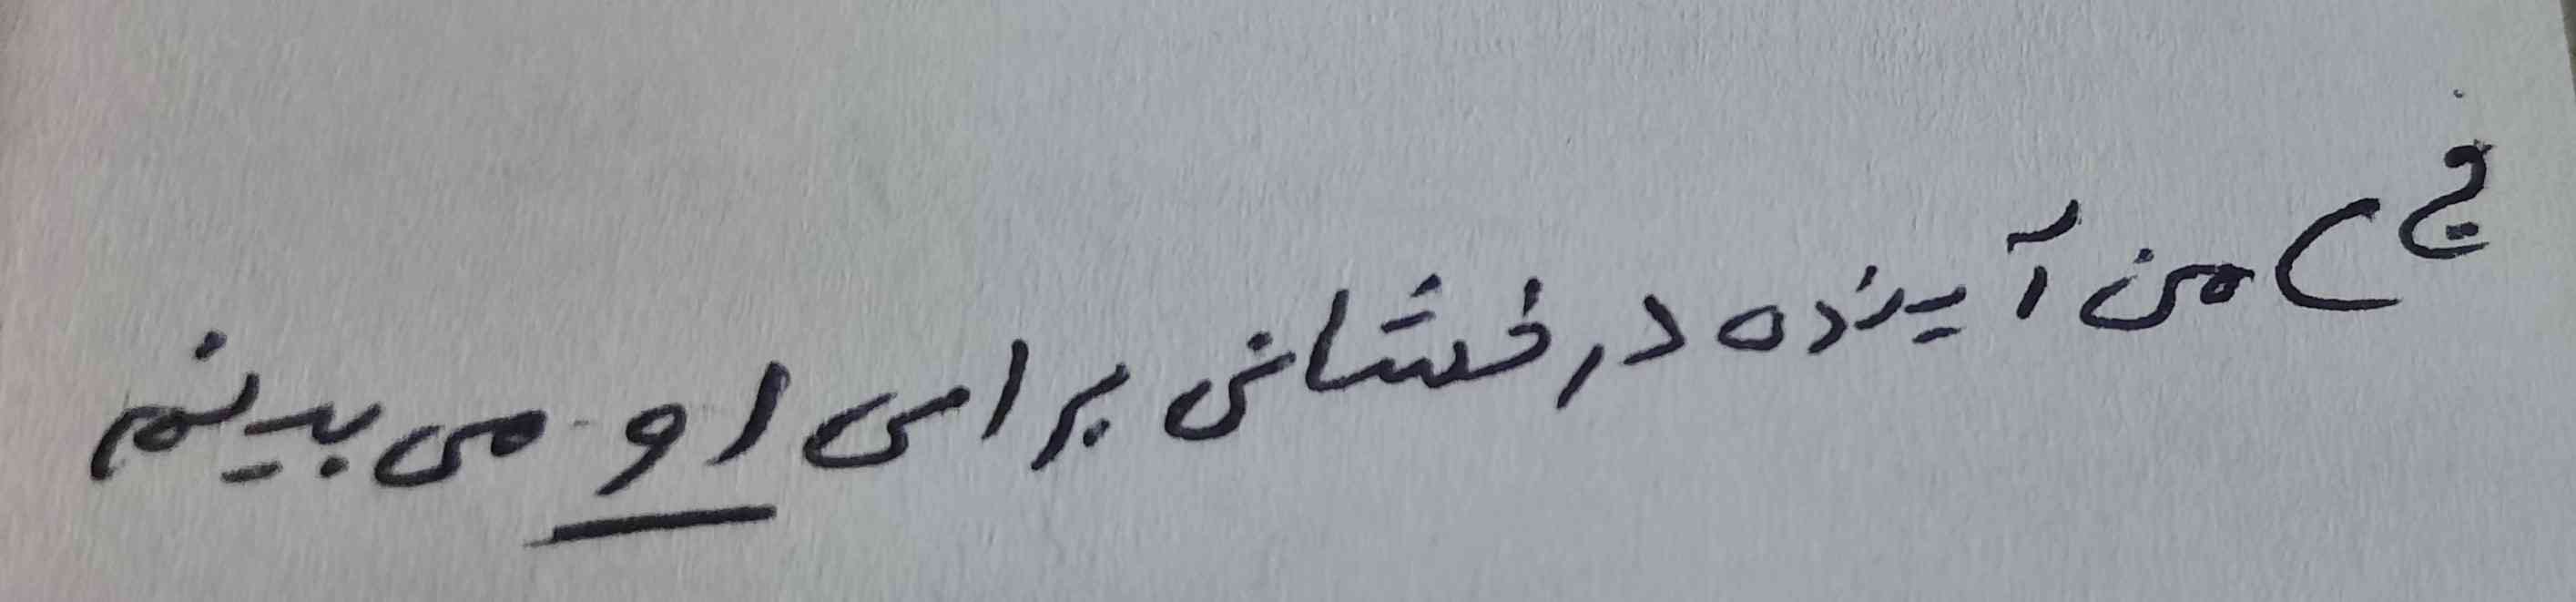 ج) من آینده درخشانی برای او می بینم